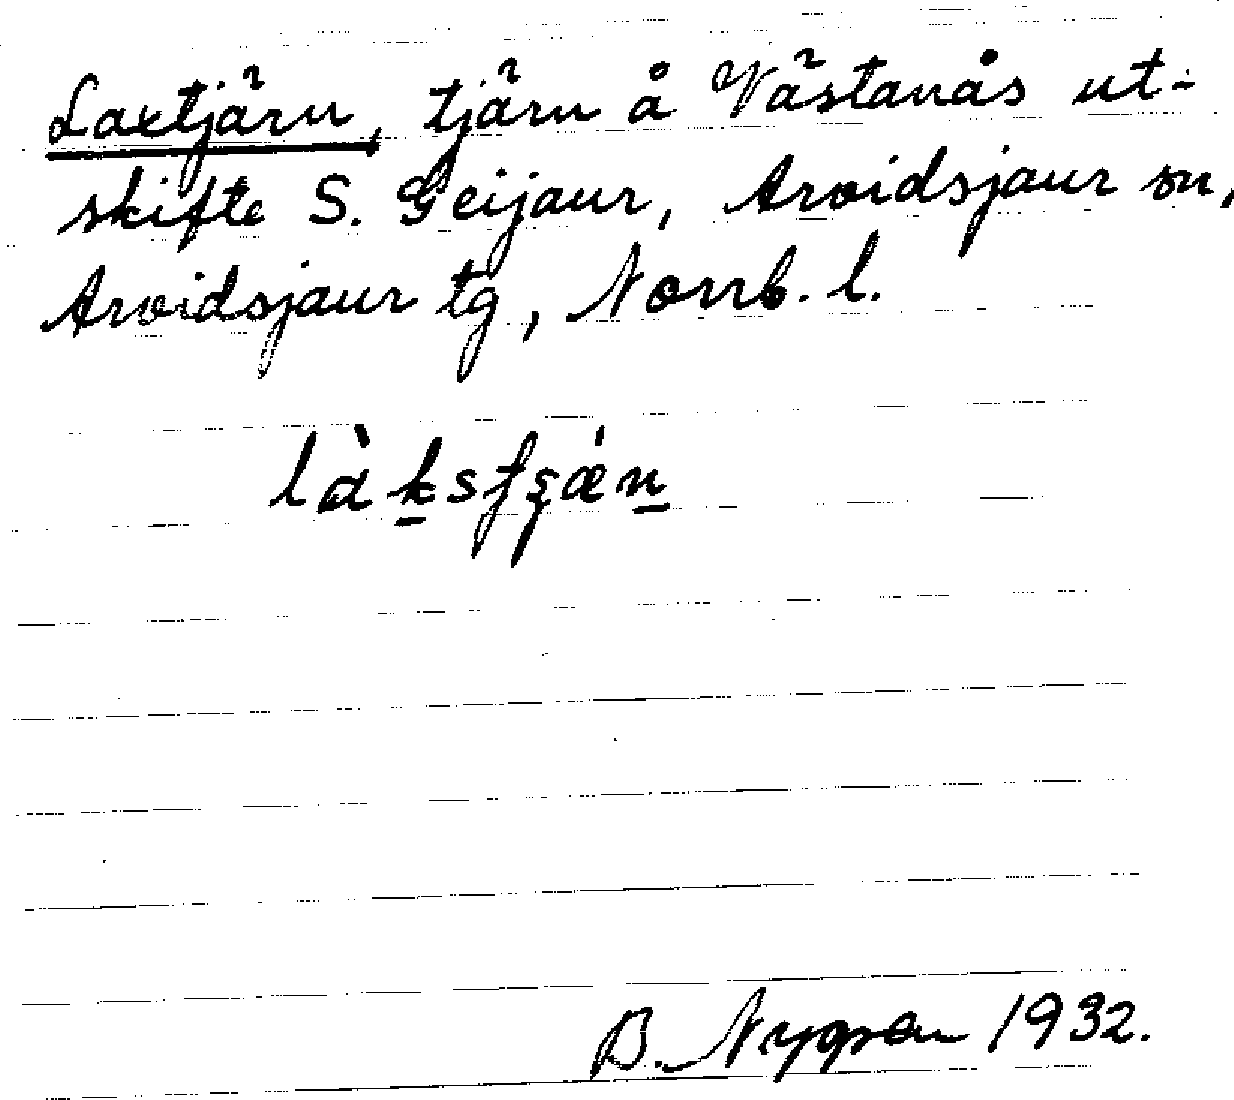 Laxtjärn, tjärn å Västanås ut-
skifte S. Geijaur, Arvidsjaur sn,
Arvidsjaur tg, Norrb. l.
B. Nygren 1932.